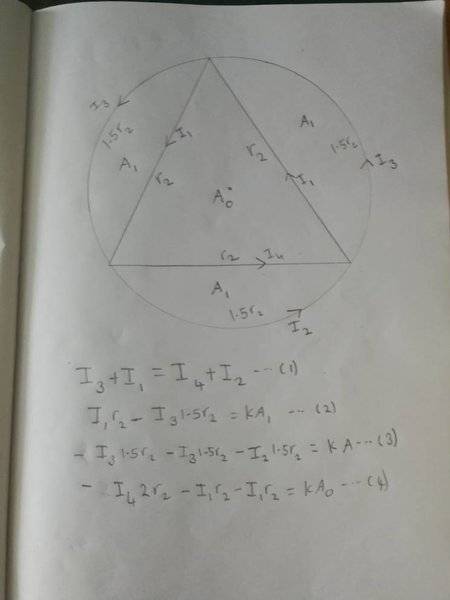 I₃
1.5r₂
A₁
I₁
r₂
A₀
r₂
I₁
A₁
1.5r₂
I₃
r₂
I₄
A₁
1.5r₂
I₂
I₃+I₁ = I₄+I₂ --- (1)
I₁r₂ - I₃1.5r₂ = kA₁ --- (2)
- I₃1.5r₂ - I₃1.5r₂ - I₂1.5r₂ = kA --- (3)
- I₄2r₂ - I₁r₂ - I₁r₂ = kA₀ --- (4)